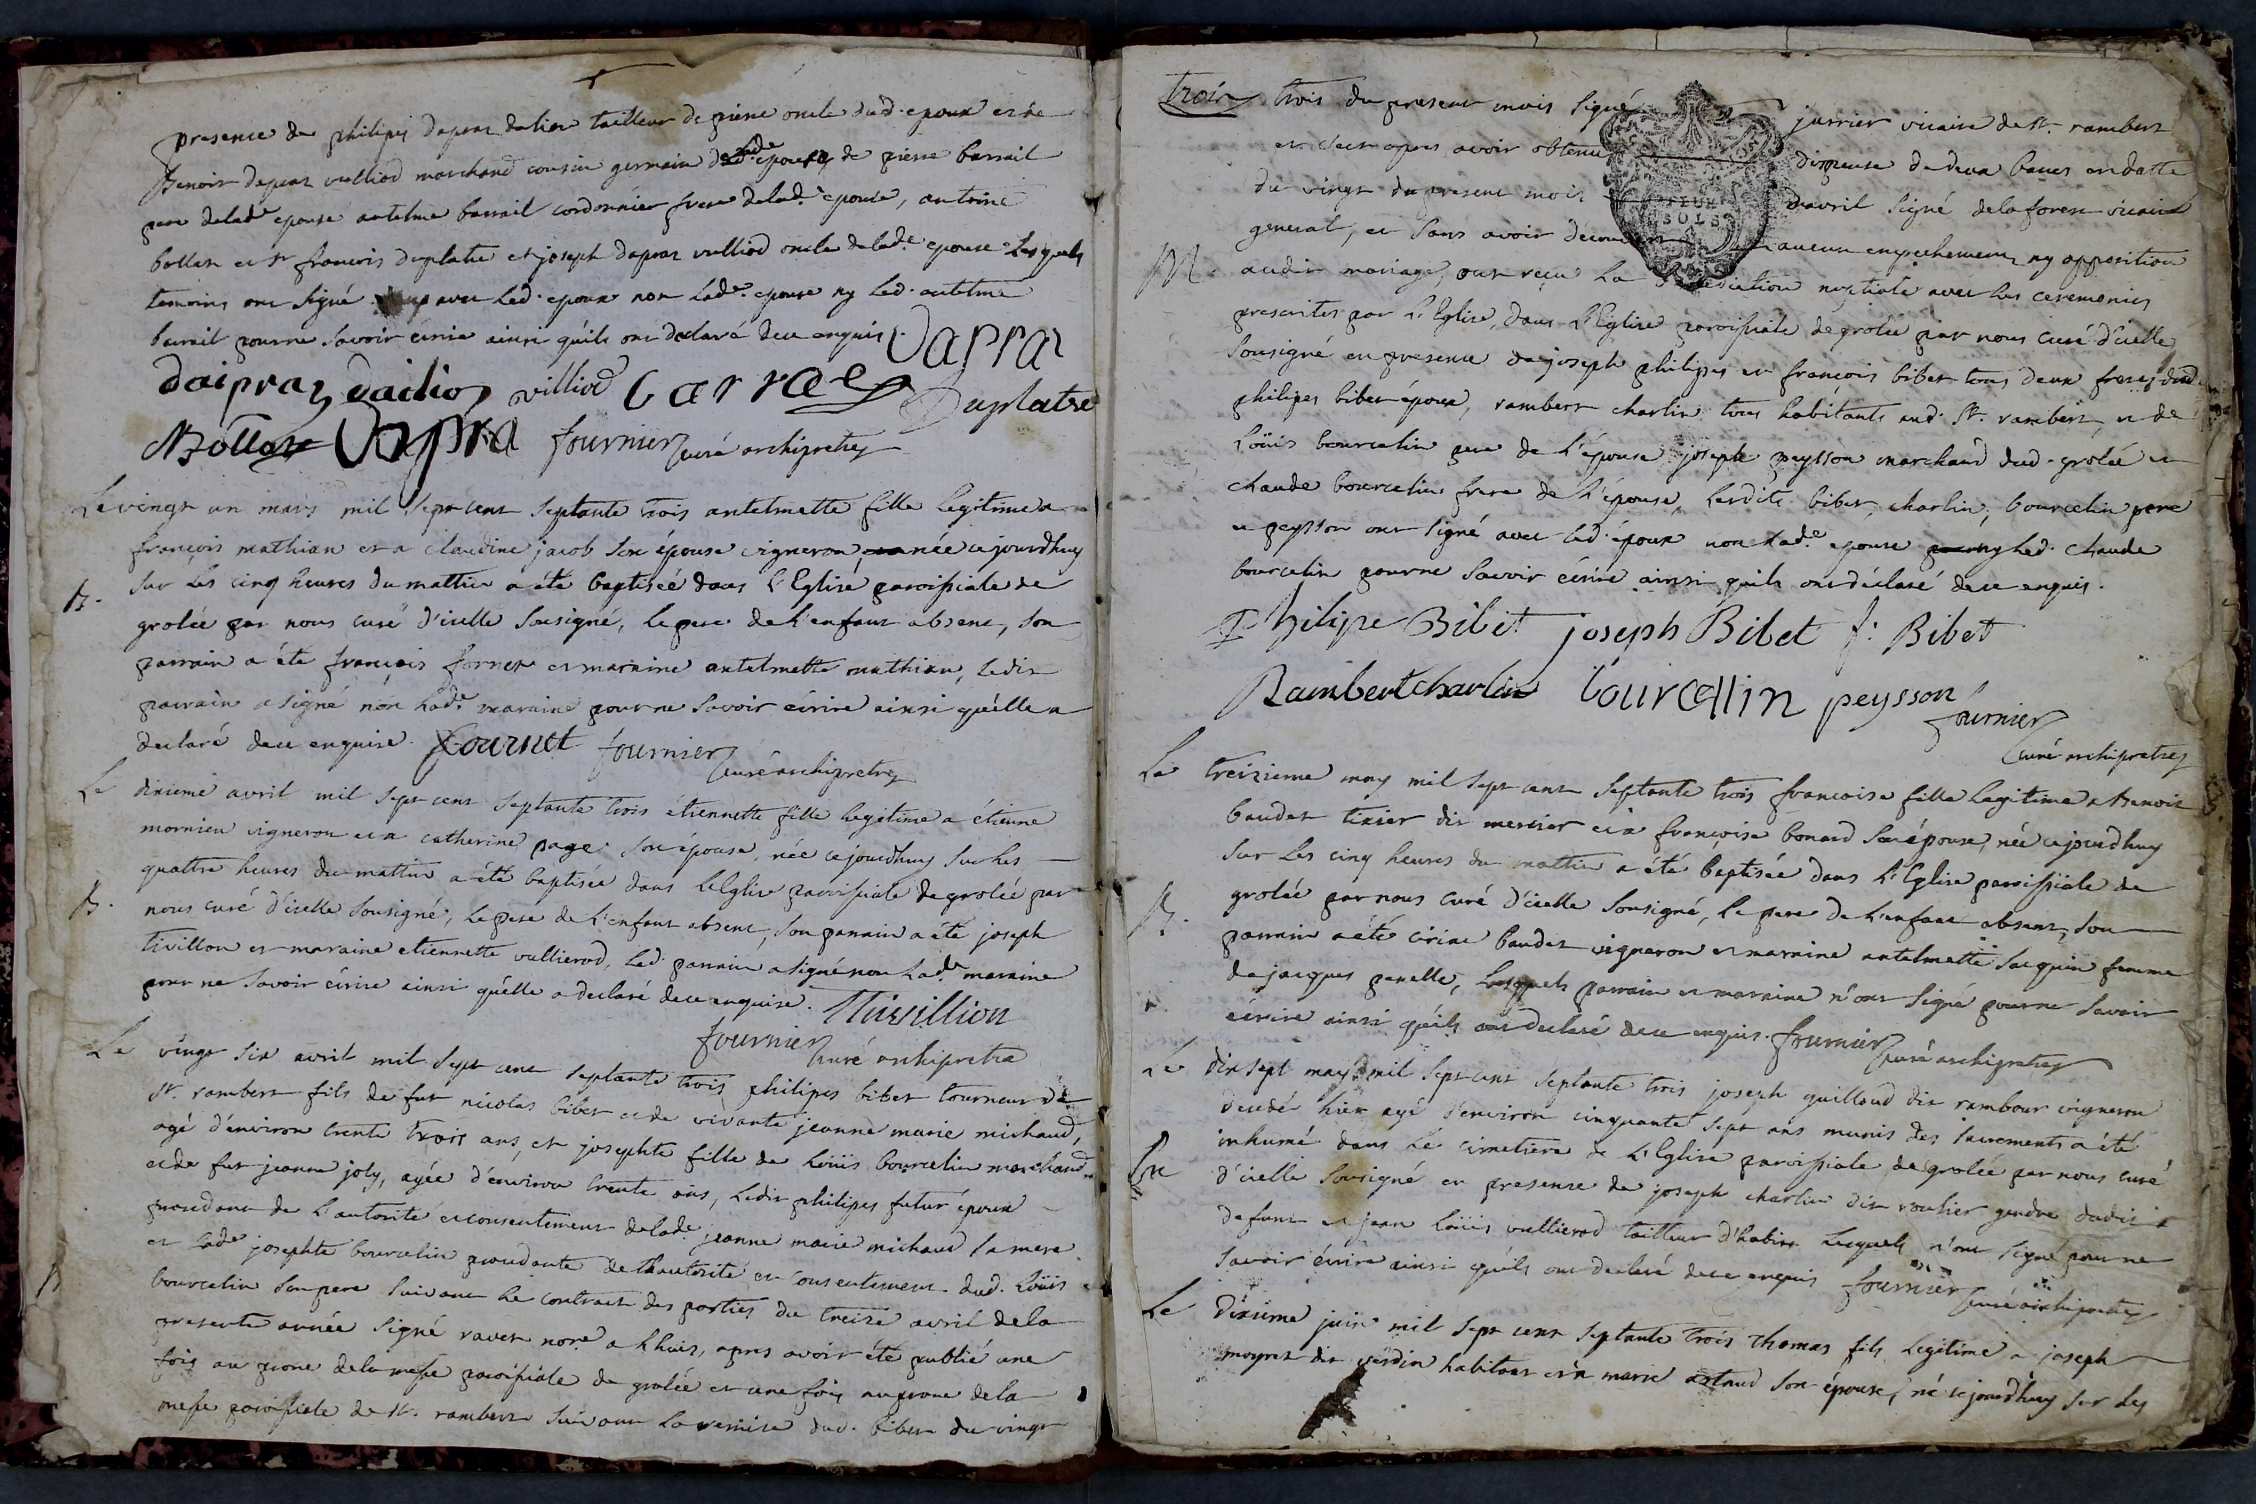 presence de philipes dapraz dalion tailleur de pierre oncle dud. epoux et de
Benoit dapraz vulliod marchand cousin germain dud. epoux, de pierre barrail
pere delade. epouse antelme barrail cordonnier frere delade. epouse, antoine
bottex et sr françois duplatre et joseph dapraz vulliod oncle delade. epouse Lesquels
temoins ont signé avec Led. epoux non Lade. epouse ny Led. antelme
barrail pour ne Savoir écrire ainsi quils ont declaré dece enquis. Dapraz
daipraz dailion villiod barrael Duplatre
Bottex Dapra fournier curé archipretre
Le vingt un mars mil Sept cent Septante trois antelmette fille Legitime a
françois mathian et a claudine jacob Son épouse vigneron, née cejourdhuy
Sur Les cinq heures du mattin a été baptisée dans L'Eglise paroissiale de
B.
grolée par nous curé d'icelle Sousigné, Le pere de L'enfant absent, Son
parrain a été françois fornet et maraine antelmette mathian, Ledit
parrain a signé non Lade. maraine pour ne Savoir écrire ainsi quélle a
declaré dece enquise. fournet fournier curé archipretre
Le dixieme avril mil Sept cent Septante trois étiennette fille Legitime a étienne
mornieu vigneron et a catherine page Son épouse, née cejourdhuy Sur Les
quattre heures du mattin a été baptisée dans L'Eglise paroissiale de grolée par
B.
nous curé d'icelle Sousigné, Le pere de L'enfant absent, Son parrain a été joseph
tivillon et maraine etiennette vullierod, Led. parrain a signé non Lade. maraine
pour ne Savoir écrire ainsi quélle a declaré dece enquise. Thivillion
fournier curé archipretre
Le vingt Six avril mil Sept cent Septante trois philipes bibet tourneur de
st. rambert fils de fut nicolas bibet et de vivante jeanne marie michaud,
agé d'environ trente trois ans, et josephte fille de Loüis bourcelin marchand
et de fut jeanne joly, agée d'environ trente ans, Ledit philipes futur époux
procedant de L'autorité et consentement delade. jeanne marie michaud Sa mere
et Lade. josephte bourcelin procedante de L'autorité et consentement dud. Loüis
bourcelin Son pere Suivant Le contract des parties du treize avril dela
presente année Signé ravet nore. a Lhuis, apres avoir été publié une
fois au prone dela messe paroissiale de grolée et une fois au prone dela
messe paroissiale de st. rambert Suivant La remise dud. bibet du vingt
trois trois du present mois Signé jurrier vicaire de st. rambert
et cest apres avoir obtenu dispense de deux bancs en datte
du vingt du present mois d'avril Signé delaforest vicaire
general, et Sans avoir découvert aucun empechement ny opposition
M.
audit mariage, ont reçu La Benediction nuptiale avec Les ceremonies
prescrites par L'Eglise, dans L'Eglise paroissiale de grolée par nous curé d'icelle
Sousigné en presence de joseph philipes et françois bibet tous deux freres dud.
philipes bibet époux, rambert charlin tous habitants aud. St. rambert, et de
Loüis bourcelin pere de L'épouse joseph peysson marchand dud. grolée et
claude bourcelin frere de L'épouse, Lesdits bibet, charlin, bourcelin pere
et peysson ont signé avec Led. époux non Lade. epouse ny Led. claude
bourcelin pour ne Savoir écrire ainsi quils ont déclaré dece enquis.
Philipe Bibet joseph Bibet f: Bibet
Rambert charlin bourcellin peysson
fournier
curé archipretre
Le treizieme may mil Sept cent Septante trois françoise fille Legitime a Benoit
baudet tixier dit mercier et a françoise bonard Son épouse, née cejourdhuy
Sur Les cinq heures du mattin a été baptisée dans L'Eglise paroissiale de
B.
grolée par nous curé d'icelle Sousigné, Le pere de L'enfant absent, Son
parrain a été ciriac baudet vigneron et maraine antelmette Jacquin femme
de jacques panelle, Lesquels parrain et maraine n'ont Signé pour ne Savoir
écrire ainsi quéils ont declaré dece enquis. fournier curé archipretre
Le dix Sept may mil Sept cent Septante trois joseph guilloud dit rambour vigneron
decedé hier agé d'environ cinquante Sept ans munis des Sacrements a été
inhumé dans Le cimetiere de L'Eglise paroissiale de grolée par nous curé
d'icelle Sousigné en presence de joseph charlin dit roulier gendre dudit
defunt et jean Loüis vullierod tailleur d'habits Lesquels n'ont Signé pour ne
Savoir écrire ainsi quéils ont declaré dece enquis fournier curé archipretre
Le Dixieme juin mil Sept cent Septante trois Thomas fils Legitime a joseph
moyret dit habitant et a marie artaud Son épouse, né cejourdhuy Sur Les